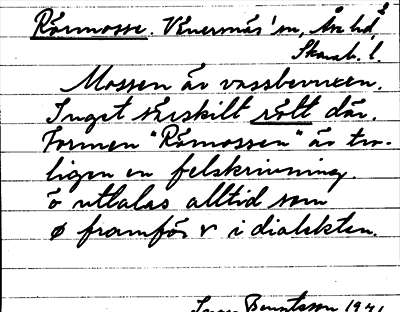 Rörmosse. Vänermäs'sn, Åse hd,
Skarab. l.
Mossen är vassbevuxen.
Inget särskilt rött där.
Formen "Römossen" är tro-
ligen en felskrivning.
ö uttalas alltid som
ø framför r i dialekten.
Bengtsson 19